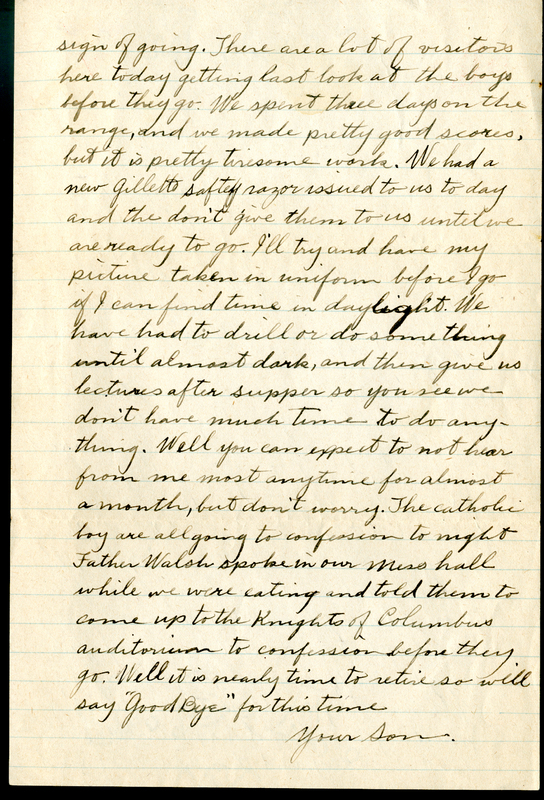 sign of going. There are a lot of visitors
here today getting last look at the boys
before they go. We spent three days on the
range, and we made pretty good scores,
but it is pretty tiresome work. We had a
new Gillette saftey razor issued to us to day
and the don't give them to us until we
are ready to go. I'll try and have my
picture taken in uniform before I go
if I can find time in daylight. We
have had to drill or do something
until almost dark, and then give us
lectures after supper so you see we
don't have much time to do any-
thing. Well you can expect to not hear
from me most anytime for almost
a month, but don't worry. The catholic
boy are all going to confession to night
Father Walsh spoke in our mess hall
while we were eating and told them to
come up to the Knights of Columbus
auditorium to confession before they
go. Well it is nearly time to retire so will
say "Good Bye" for this time
Your Son.